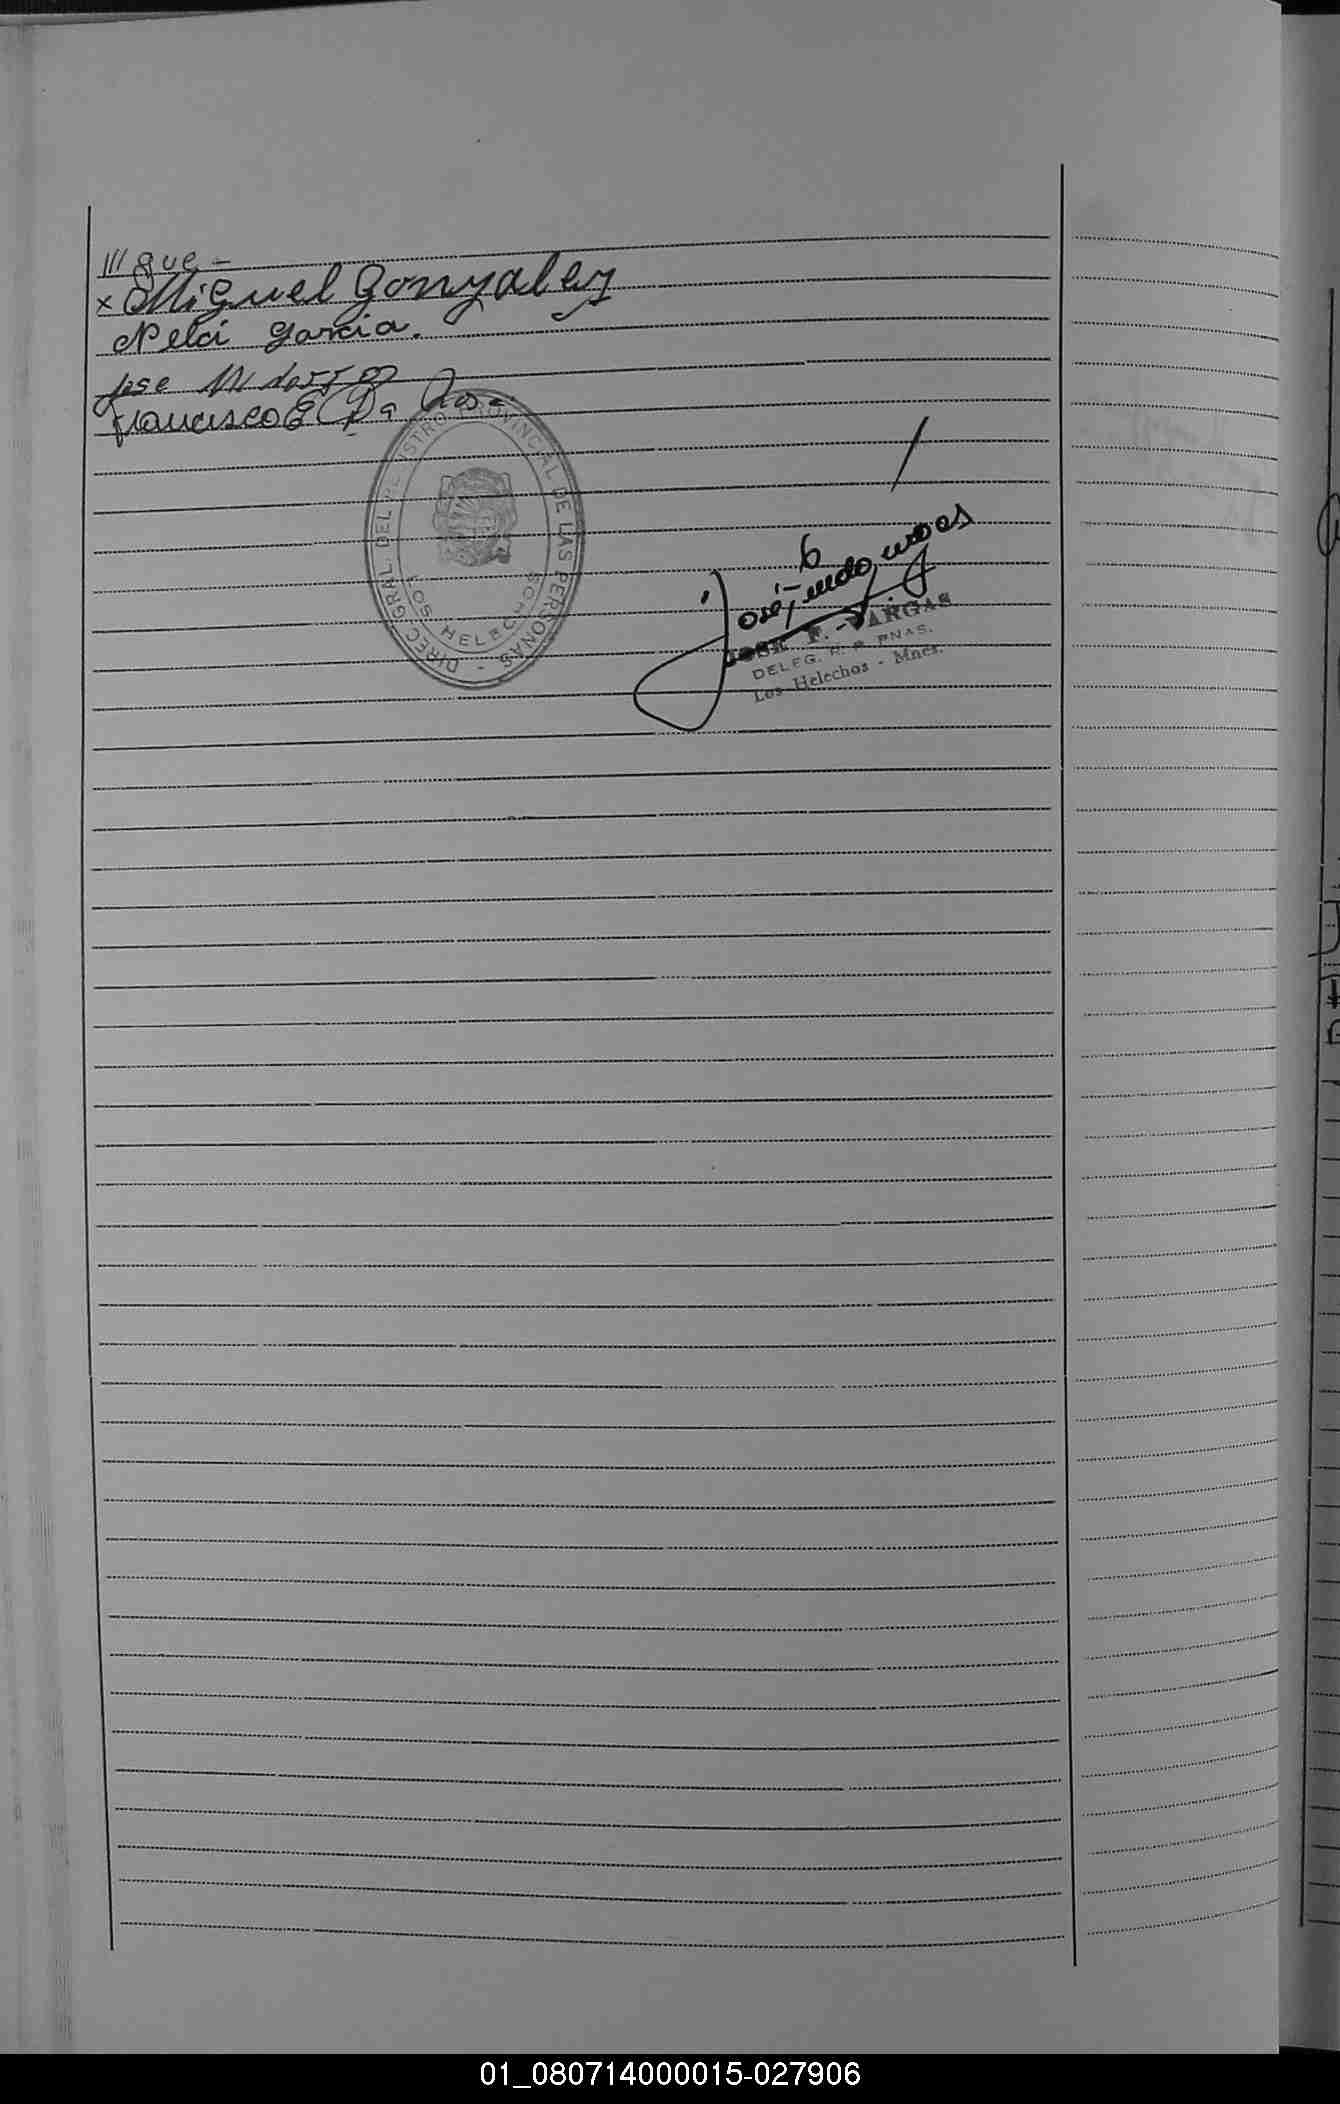 /// que -
x Miguel Gonzalez
Nelci Garcia.
Jose M
Francisco E Da Rosa
DIREC. GRAL. DEL REGISTRO PROVINCIAL DE LAS PERSONAS -
LOS HELECHOS
José
JOSE F. VARGAS
DELEG. R. P. PNAS.
Los Helechos - Mnes.
01_080714000015-027906